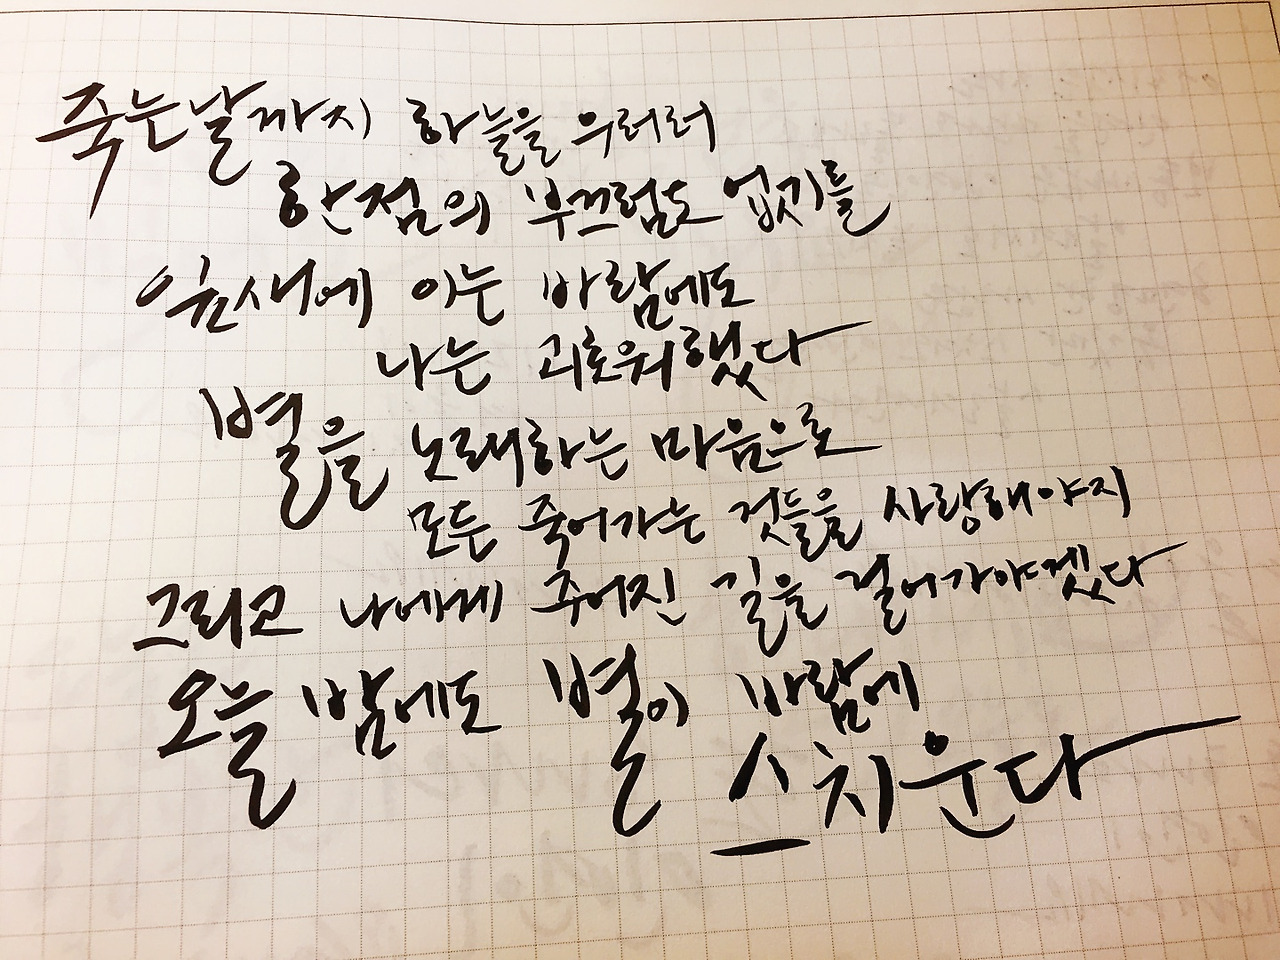 죽는날까지 하늘을 우러러
한점의 부끄럼도 없기를
잎새에 이는 바람에도
나는 괴로워했다
별을 노래하는 마음으로
모든 죽어가는 것들을 사랑해야지
그리고 나에게 주어진 길을 걸어가야겠다
오늘 밤에도 별이 바람에
스치운다